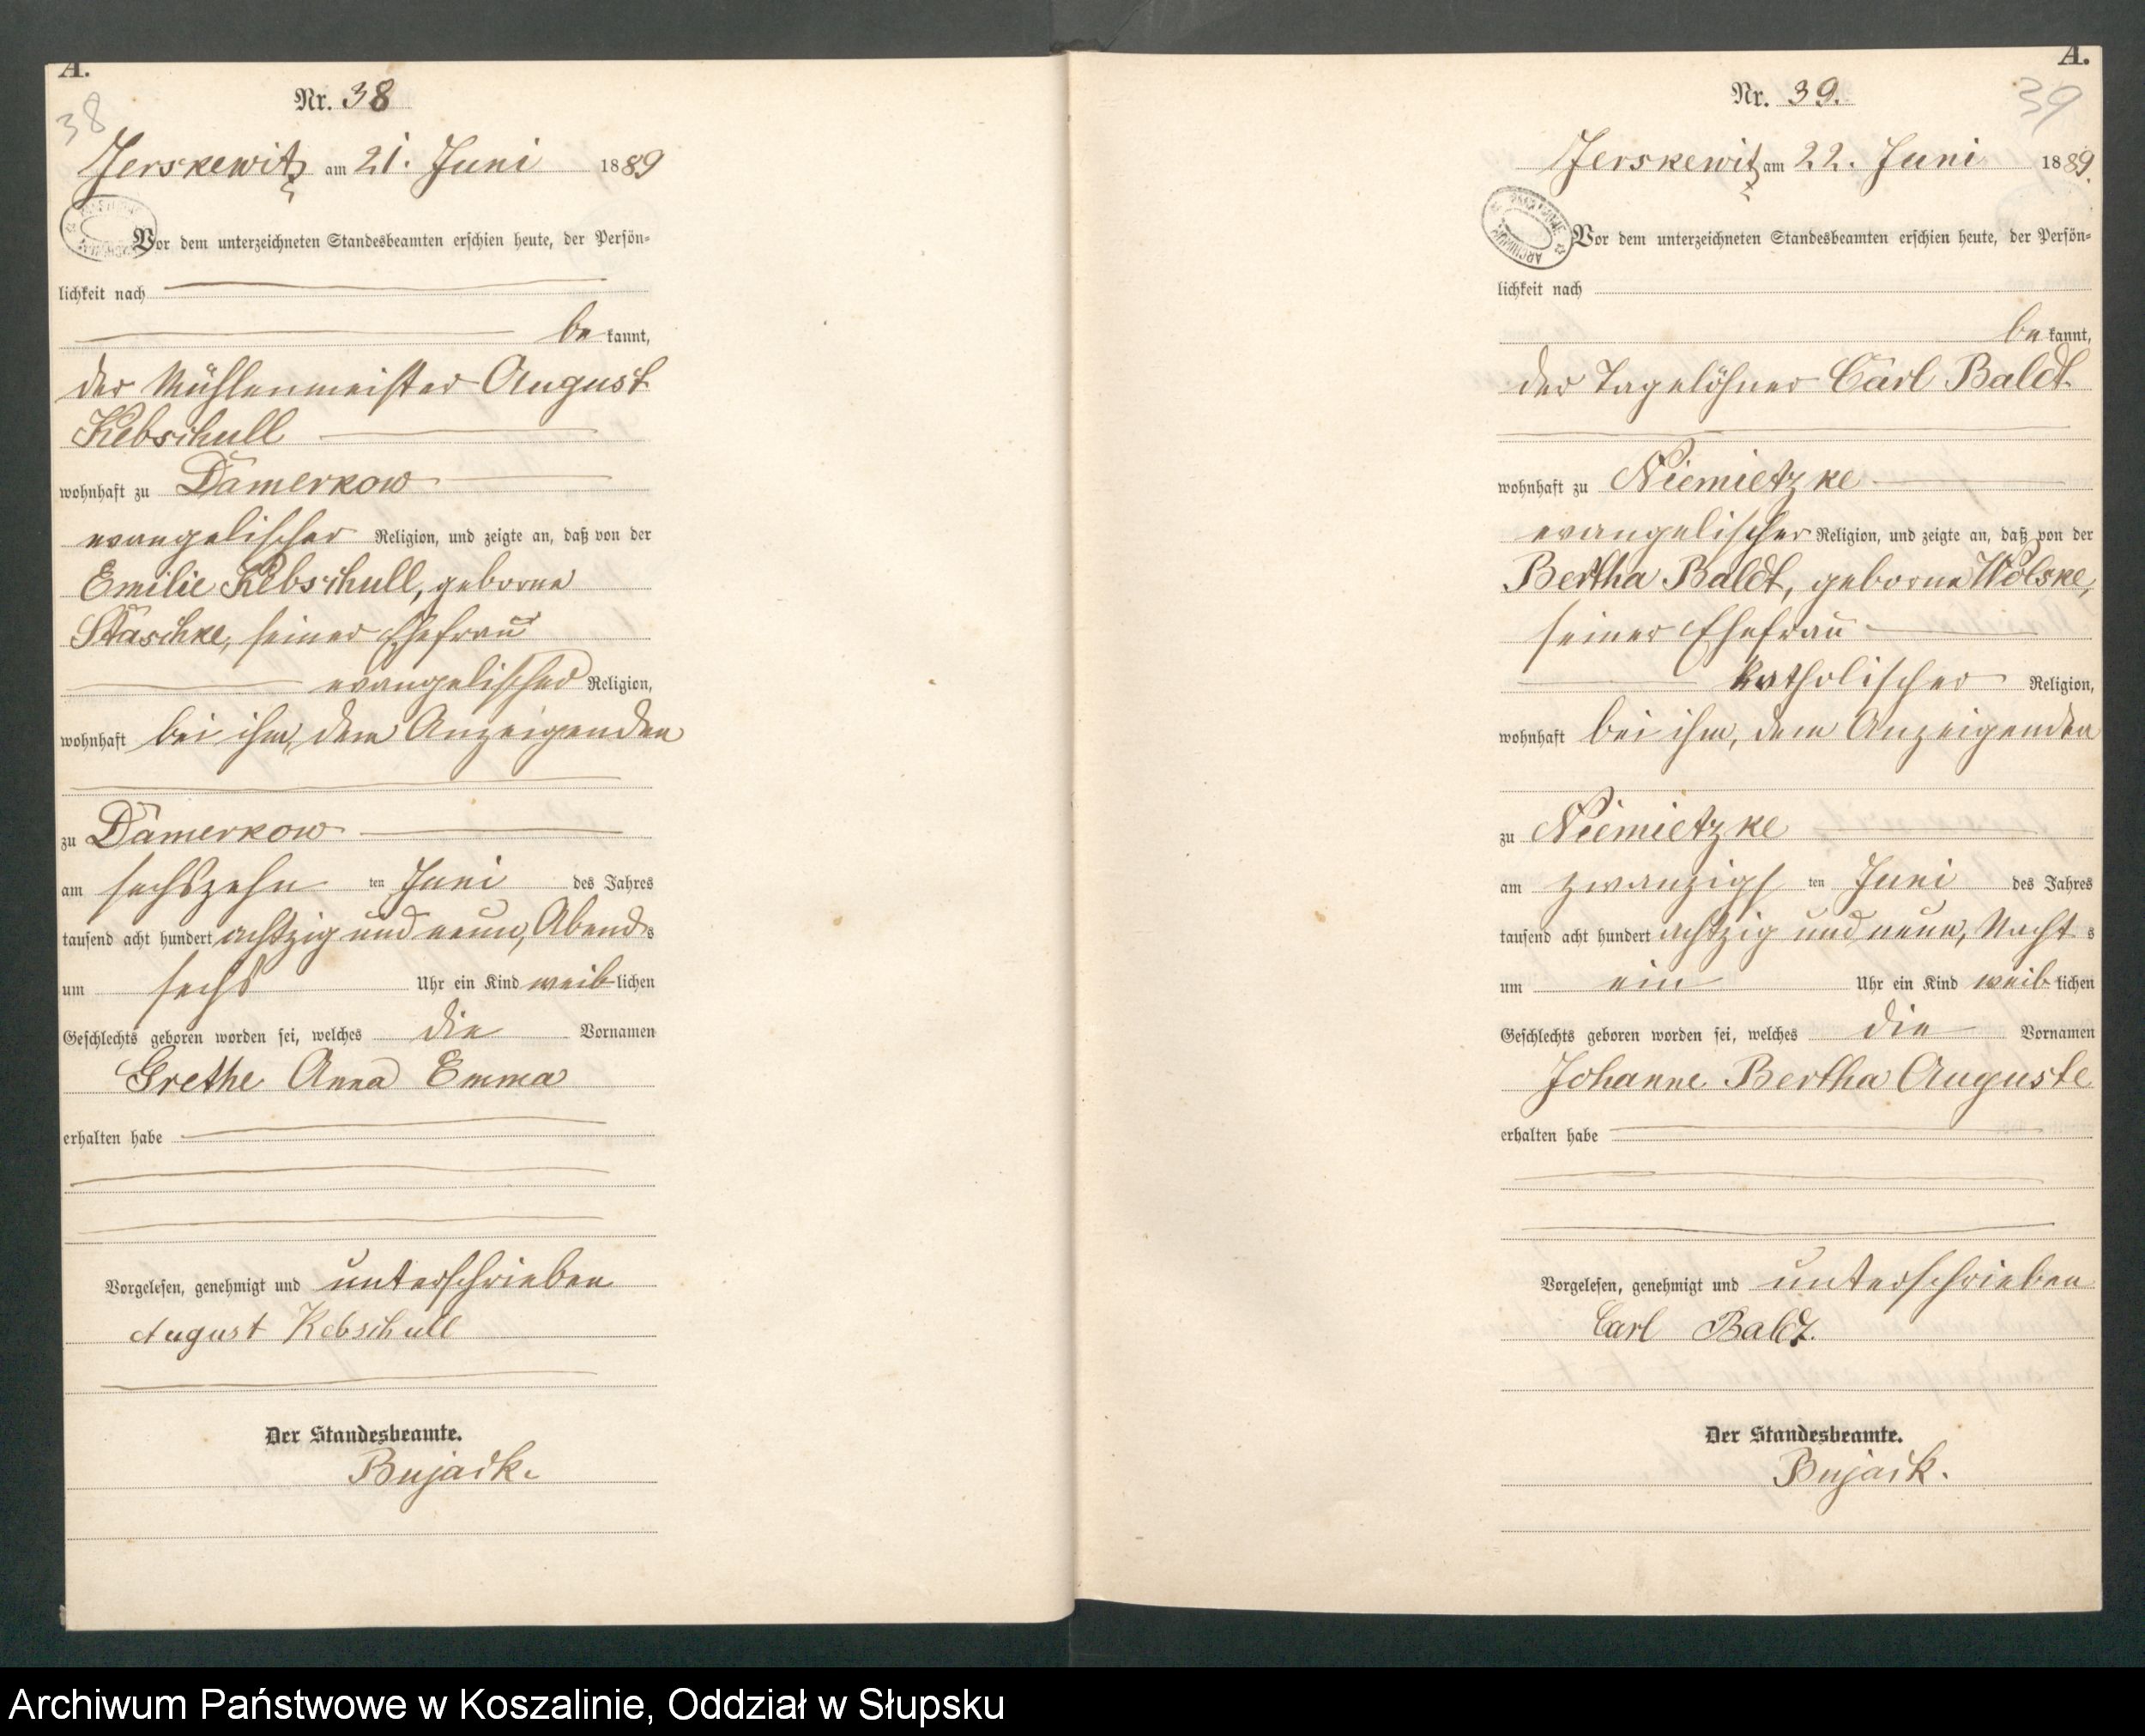 A.
38
Nr. 38
Jerskewitz am 21. Juni 1889
Vor dem unterzeichneten Standesbeamten erschien heute, der Persön-
lichkeit nach
be kannt,
der Mühlenmeister August
Kebschull
wohnhaft zu Damerkow
evangelischer Religion, und zeigte an, daß von der
Emilie Kebschull, geborne
Staschke, seiner Ehefrau
evangelischer Religion,
wohnhaft bei ihm, dem Anzeigenden
zu Damerkow
am sechszehn ten Juni des Jahres
tausend acht hundert achtzig und neun, Abends
um sechs Uhr ein Kind weiblichen
Geschlechts geboren worden sei, welches die Vornamen
Grethe Anna Emma
erhalten habe
Vorgelesen, genehmigt und unterschrieben
August Kebschull
Der Standesbeamte.
Bujack.
A.
39
Nr. 39.
Jerskewitz am 22. Juni 1889.
Vor dem unterzeichneten Standesbeamten erschien heute, der Persön-
lichkeit nach
be kannt,
der Tagelöhner Carl Baldt
wohnhaft zu Niemietzke
evangelischer Religion, und zeigte an, daß von der
Bertha Baldt, geborne Wolske,
seiner Ehefrau
katholischer Religion,
wohnhaft bei ihm, dem Anzeigenden
zu Niemietzke
am zwanzigs ten Juni des Jahres
tausend acht hundert achtzig und neun, Nachts
um ein Uhr ein Kind weiblichen
Geschlechts geboren worden sei, welches die Vornamen
Johanne Bertha Auguste
erhalten habe
Vorgelesen, genehmigt und unterschrieben
Carl Baldt.
Der Standesbeamte.
Bujack.
Archiwum Państwowe w Koszalinie, Oddział w Słupsku